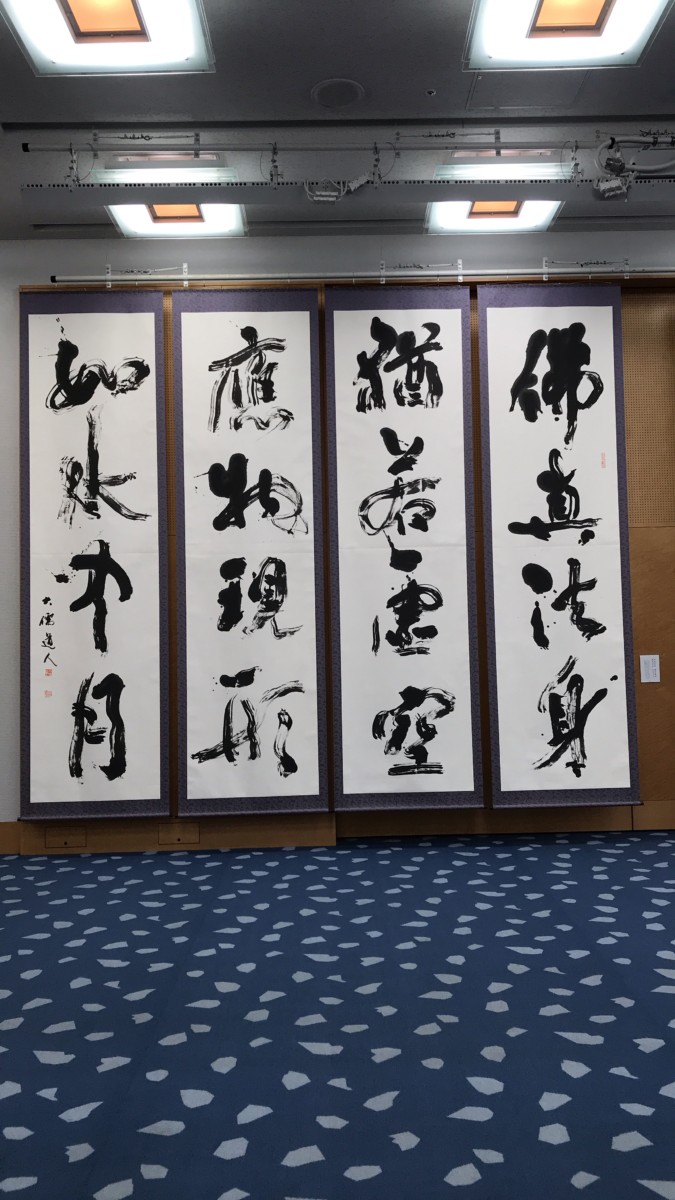 佛真法身
猶若虛空
應物現形
如水中月
大儒道人